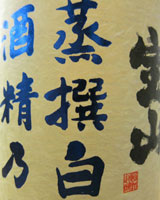 宝山
蒸撰白
酒精乃